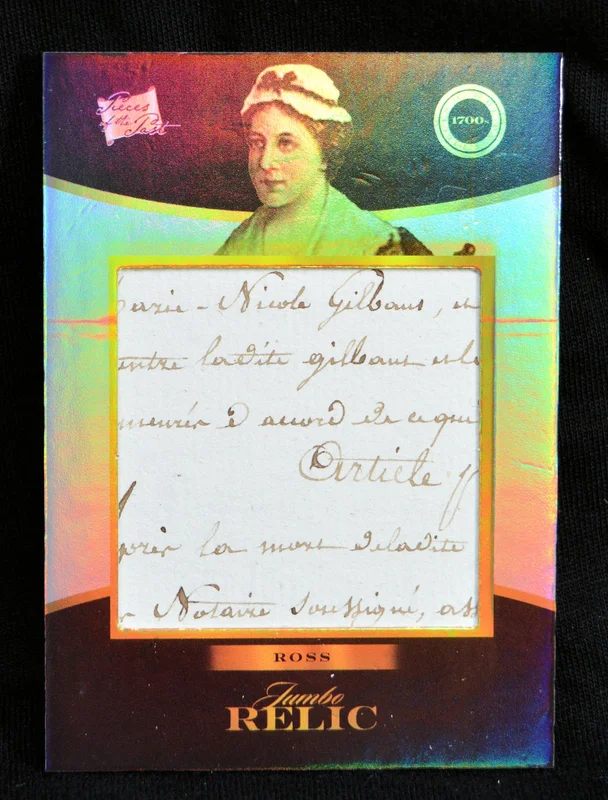 Pieces
of the Past
1700s
Marie - Nicole Gilbaut, et
entre ladite gilbaut et le
meurés d'accord de ce qui
Article
après la mort de ladite
Notaire soussigné, ass
ROSS
Jumbo
RELIC